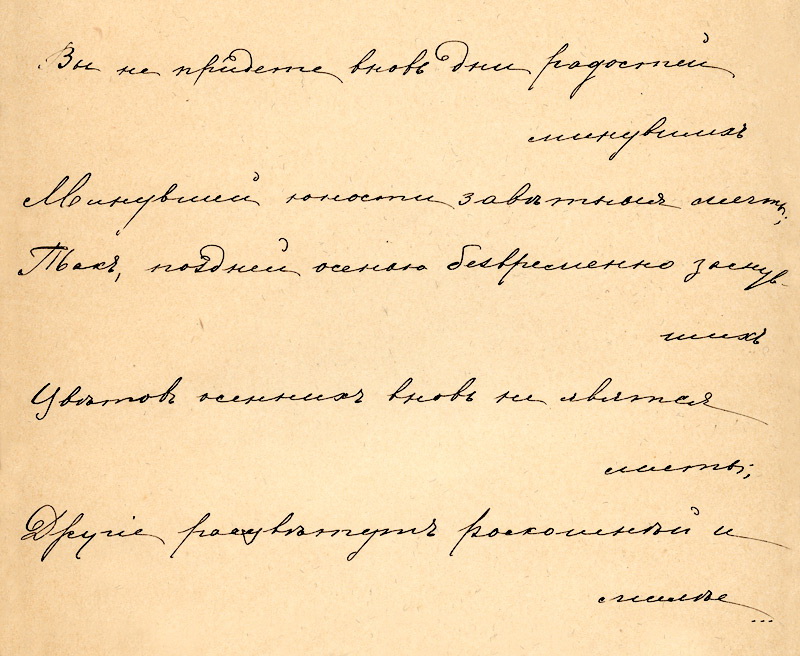 Вы не прійдете вновь дни радостей
минувшихъ
Минувшей юности завѣтныя мечты;
Такъ, поздней осенью безвременно заснув-
шихъ
Цвѣтовъ осеннихъ вновь не явятся
листы;
Другіе расцвѣтутъ роскошнѣй и
милѣе...